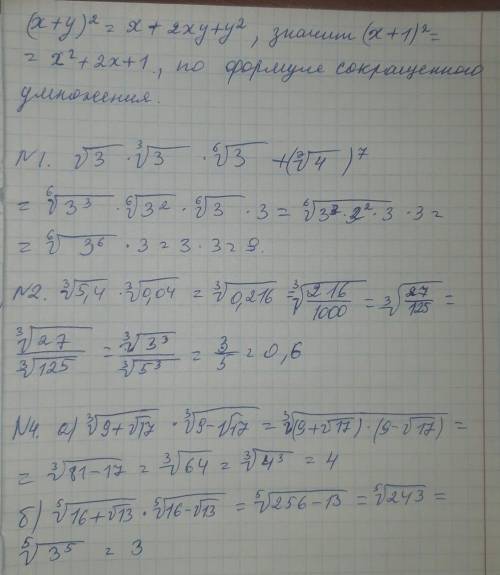 (x+y)² = x + 2xy+y², значит (x+1)² =
= x²+2x+1, по формуле сокращенного
умножения.
N1. √3 · ∛3 · ⁶√3 + (⁷√4)⁷
= ⁶√3³ · ⁶√3² · ⁶√3 · 3 = ⁶√3³·3²·3 · 3 =
= ⁶√3⁶ · 3 = 3 · 3 = 9.
N2. ∛5,4 · ∛0,04 = ∛0,216 = ∛216/1000 = ∛27/125 =
∛27/∛125 = ∛3³/∛5³ = 3/5 = 0,6
N4. а) ∛9+√17 · ∛9-√17 = ∛(9+√17)·(9-√17) =
= ∛81-17 = ∛64 = ∛4³ = 4
б) ⁵√16+√13 · ⁵√16-√13 = ⁵√256-13 = ⁵√243 =
⁵√3⁵ = 3